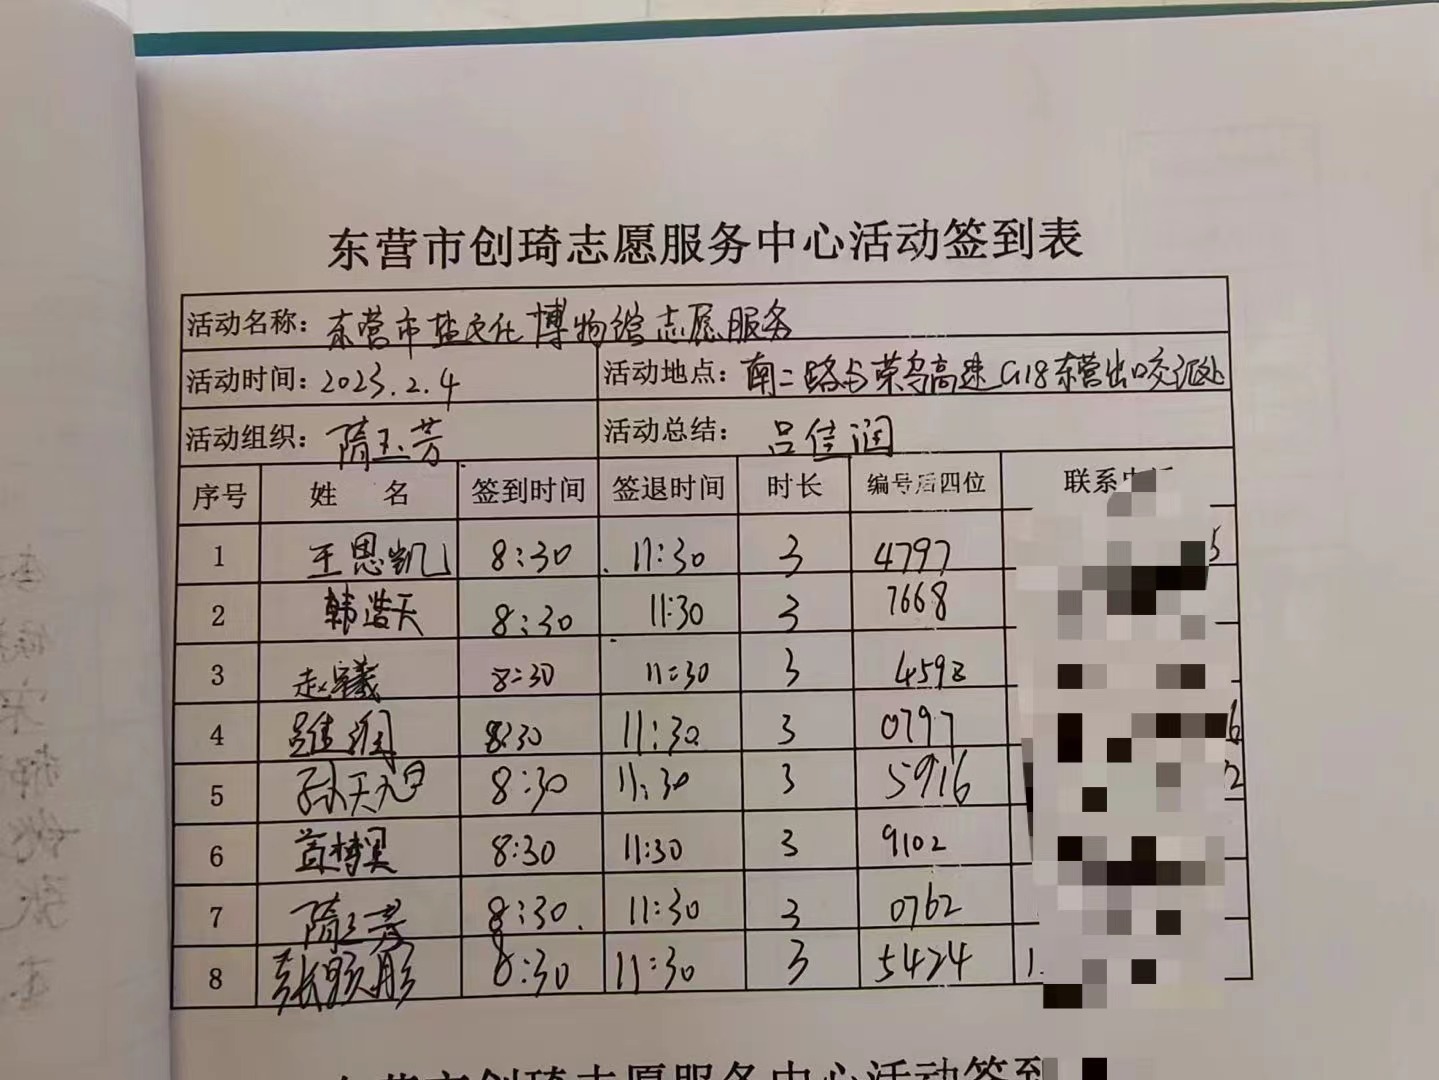 东营市创琦志愿服务中心活动签到表
活动名称：东营市盐文化博物馆志愿服务
活动时间：2023.2.4 活动地点：南二路与荣乌高速G18东营出口交汇处
活动组织：隋玉芳 活动总结：吕佳润
序号 姓 名 签到时间 签退时间 时长 编号后四位 联系电话
1 王思凯 8:30 11:30 3 4797 5
2 韩浩天 8:30 11:30 3 7668
3 赵 8:30 11:30 3 4592
4 吕佳润 8:30 11:30 3 0797 6
5 孙天 8:30 11:30 3 5916 2
6 8:30 11:30 3 9102
7 隋玉芳 8:30 11:30 3 0762
8 张颢彤 8:30 11:30 3 5424 1
东营市创琦志愿服务中心活动签到